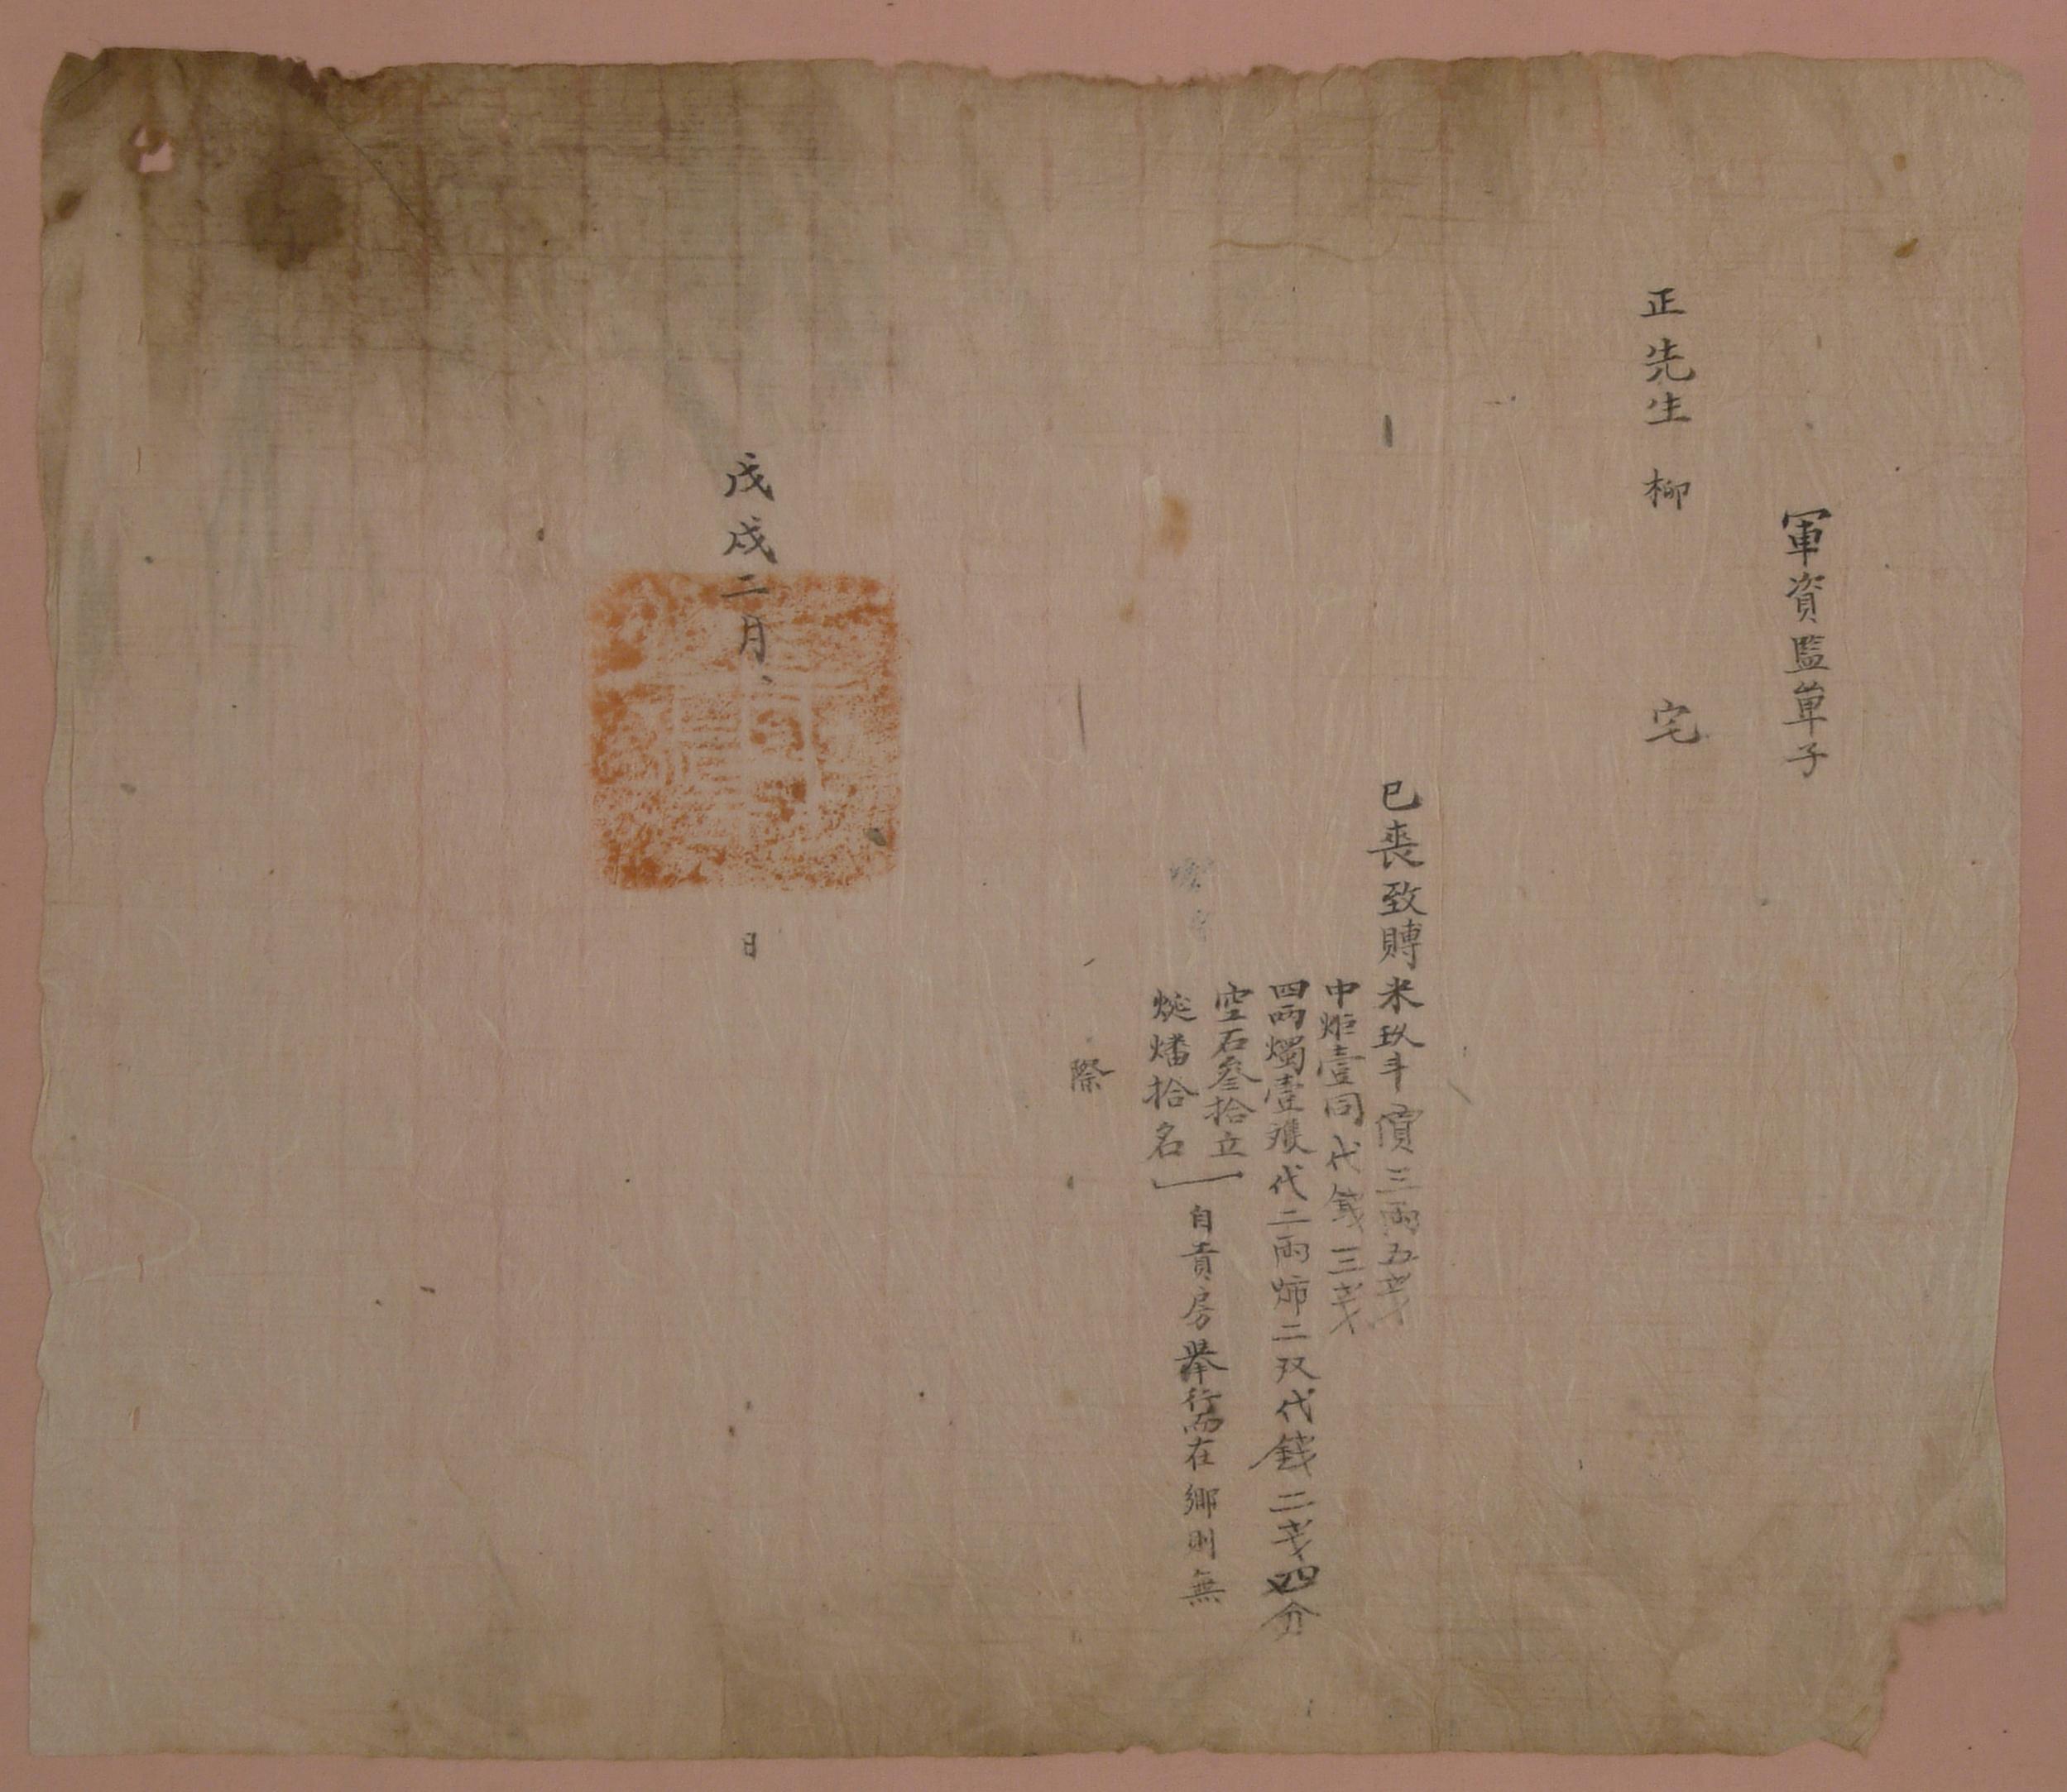 軍資監單子
正先生 柳 宅
已喪致賻米玖斗價三兩五戔
中炬壹同代錢三戔
四兩燭壹雙代二兩㷁二双代錢二戔四分
空石叁拾立
燔拾名
自貢房擧行而在鄉則無
際
戊戌二月 日